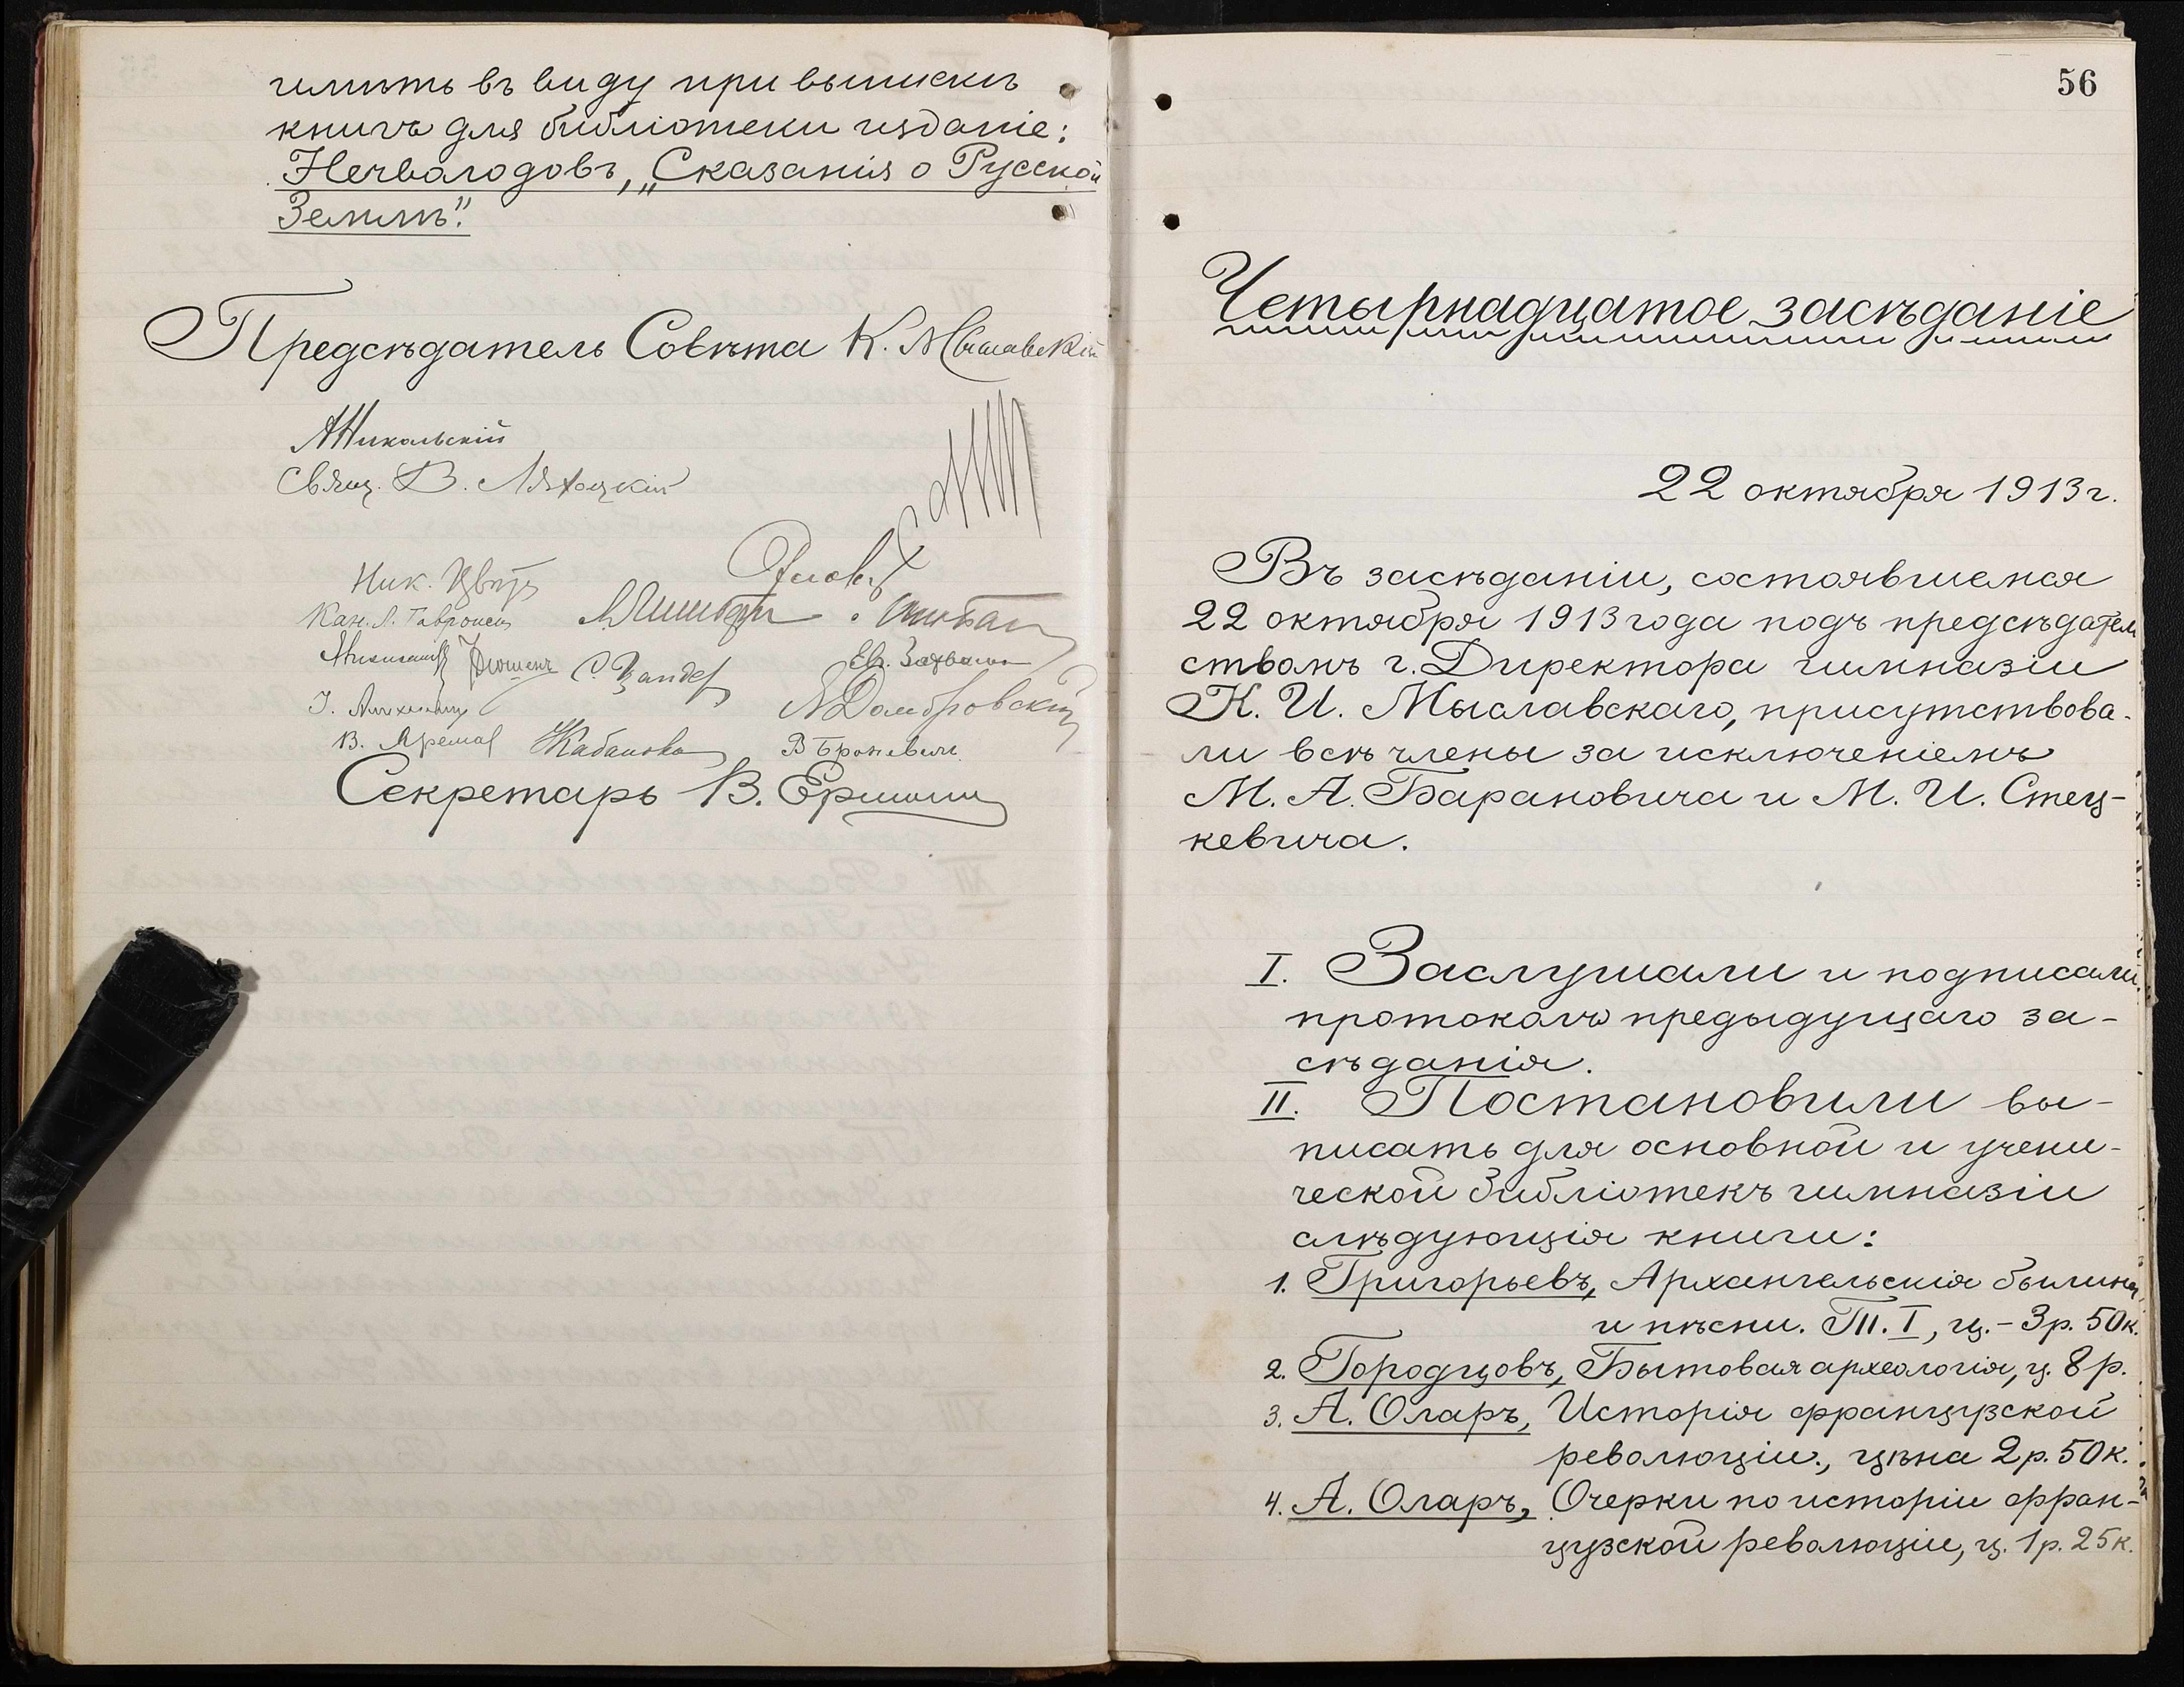 имѣть въ виду при выпискѣ
книгъ для библіотеки изданіе:
Нечволодовъ, „Сказанія о Русской
Землѣ".
Предсѣдатель Совѣта К. Мыславскій
А Никольскій
Свящ. В. Ляхоцкій
Ник.
Кан. Л.
С. Цандер
А Домбровскій
В. Ярема
Кабанова
В Броневск
Секретарь В.
56
Четырнадцатое засѣданіе
22 октября 1913 г.
Въ засѣданіи, состоявшемся
22 октября 1913 года подъ предсѣдатель
ствомъ г. Директора гимназіи
К. И. Мыславскаго, присутствова-
ли всѣ члены за исключеніемъ
М. А. Барановича и М. И. Стец-
кевича.
I. Заслушали и подписали
протоколъ предыдущаго за-
сѣданія.
II. Постановили вы-
писать для основной и учени-
ческой библіотекъ гимназіи
слѣдующія книги:
1. Григорьевъ, Архангельскія былины
и пѣсни. Т. I, ц. - 3 р. 50 к.
2. Городцовъ, Бытовая археологія, ц. 8 р.
3. А. Оларъ, Исторія французской
революціи., цѣна 2 р. 50 к.
4. А. Оларъ, Очерки по исторіи фран-
цузской революціи, ц. 1 р. 25 к.